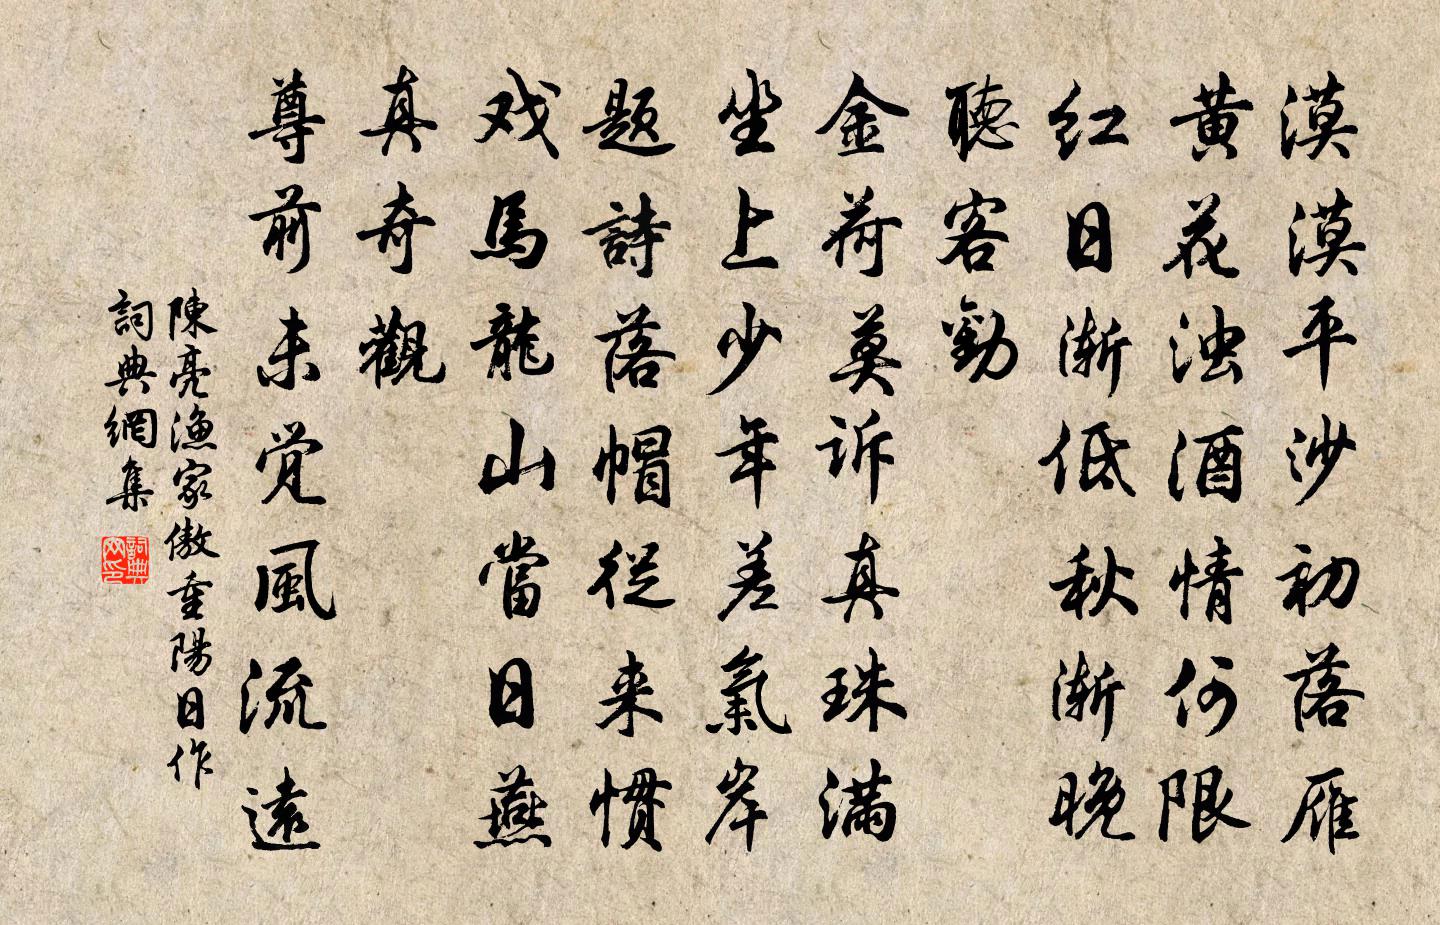 漠漠平沙初落雁
黄花浊酒情何限
红日渐低秋渐晚
聽客勸
金荷莫诉真珠滿
坐上少年差氣岸
題詩落帽從来慣
戏馬龍山當日燕
真奇觀
尊前未覚風流遠
陳亮漁家傲重陽日作
詞典網集
詞典网印